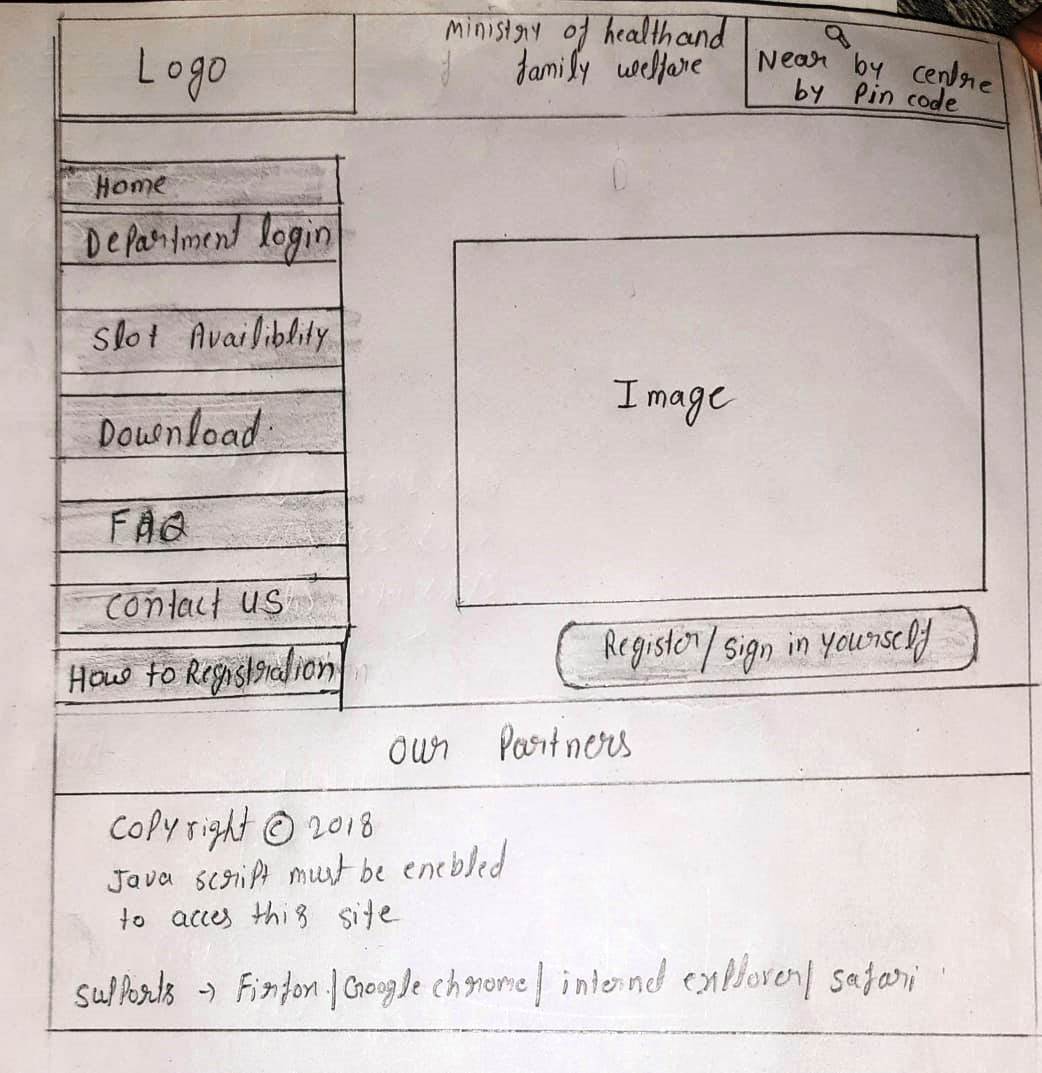 Logo
Ministry of health and
family welfare
Near by centre
by Pin code
Home
Department login
Slot Availiblity
Download
FAQ
Contact us
How to Registration
Image
Register/sign in yourself
our Partners
Copyright © 2018
Java script must be enebled
to acces this site
Supports → Firfox/Google chrome/internel explorer/safari